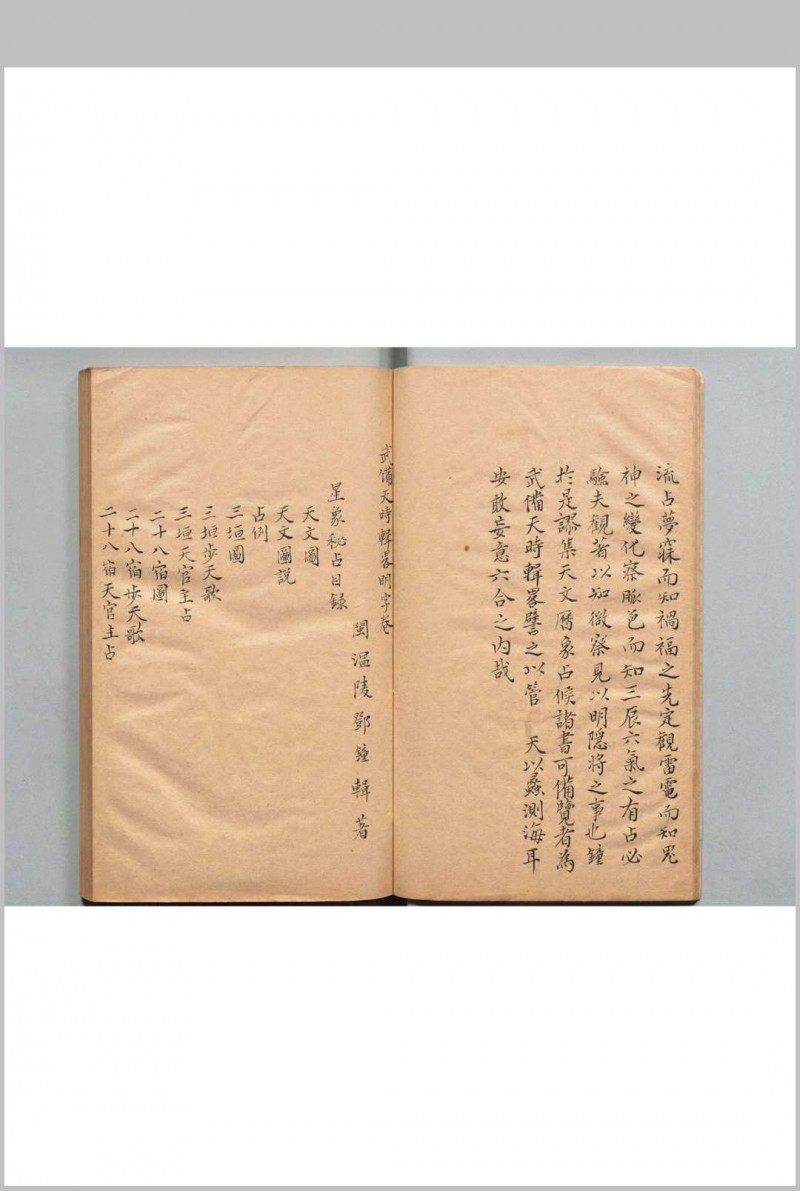 流占夢寐而知禍福之先定觀雷電而知鬼
神之變化察脈色而知三辰六氣之有占必
驗夫觀著以知微察見以明隱將之事也鐘
於是謬集天文曆象占候諸書可備覽者為
武備天時輯畧譬之以管 天以蠡測海耳
安敢妄意六合之內哉
武備天時輯畧明字卷
閩溫陵鄧鐘輯著
星象秘占目録
天文圖
天文圖説
占例
三垣圖
三垣步天歌
三垣天官主占
二十八宿圖
二十八宿步天歌
二十八宿天官主占